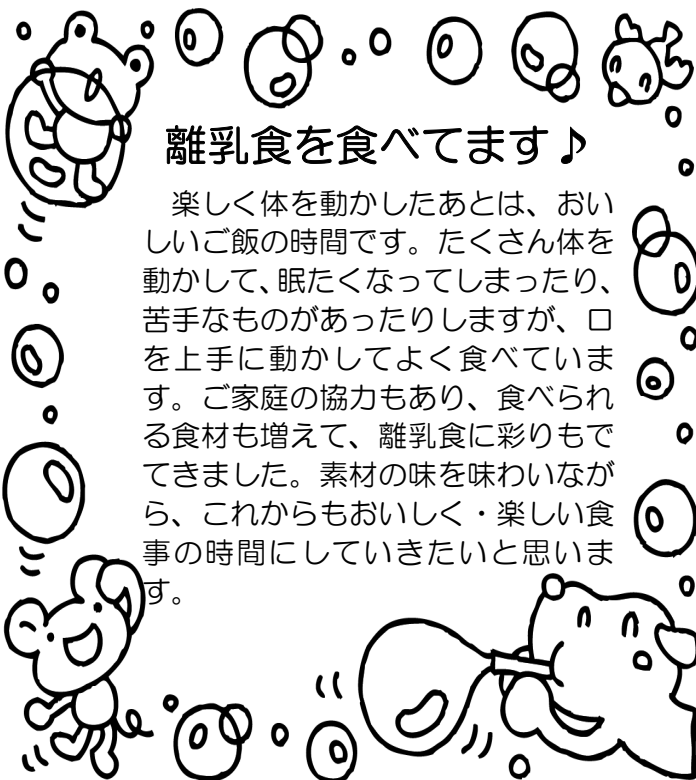 離乳食を食べてます♪
　楽しく体を動かしたあとは、おい
しいご飯の時間です。たくさん体を
動かして、眠たくなってしまったり、
苦手なものがあったりしますが、口
を上手に動かしてよく食べていま
す。ご家庭の協力もあり、食べられ
る食材も増えて、離乳食に彩りもで
てきました。素材の味を味わいなが
ら、これからもおいしく・楽しい食
事の時間にしていきたいと思いま
す。